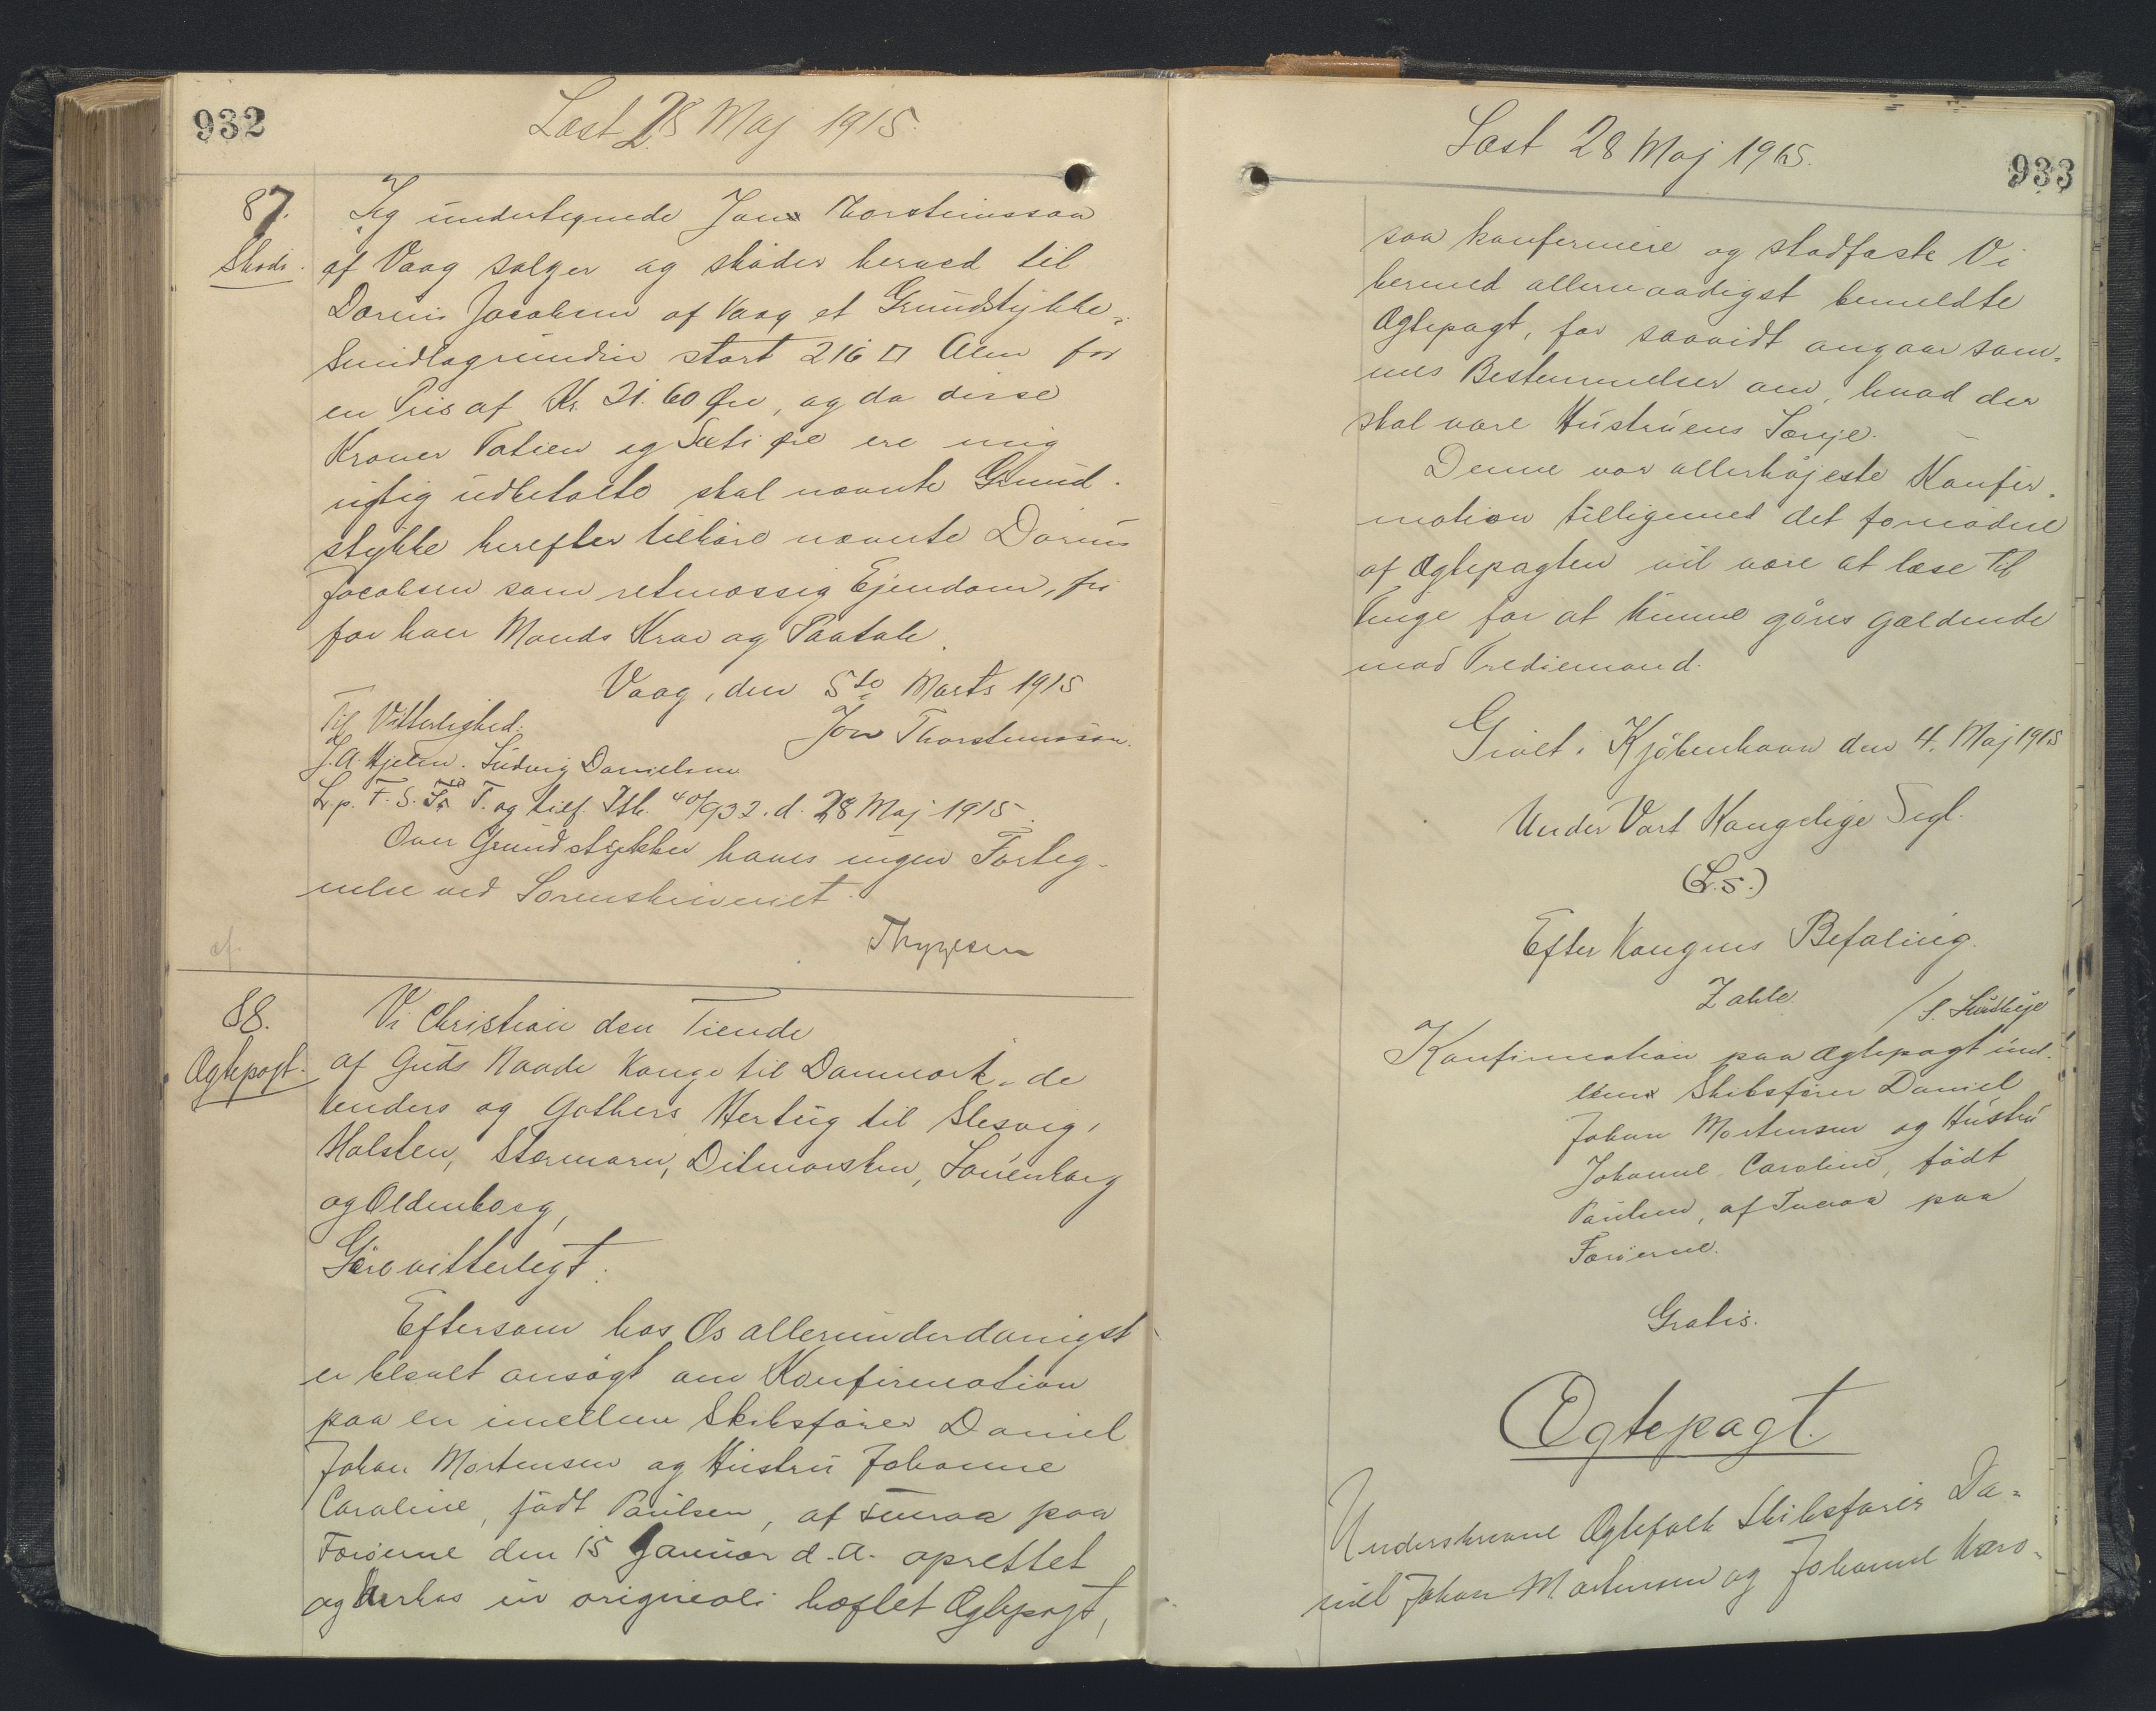 932
Læst 28 Maj 1915.
87.
Skøde.
Jeg undertegnede Jon Thorsteinsson
af Vaag sælger og skøder herved til
Dorius Jacobsen af Vaag et Grundstykke
stort 216 □ Alen for
en Pris af Kr. 21.60 Øre, og da disse
Kroner og Øre ere mig
rigtig udbetalte skal nævnte Grund-
stykke herefter tilhøre nævnte Dorius
Jacobsen som retmæssig Ejendom, fri
for hver Mands Krav og Paatale.
Vaag, den 5te Marts 1915
Til Vitterlighed:
Jon Thorsteinsson.
J. A. Hjelm. Ludvig Danielsen
L. p. F. S. T. og tilf. 40/932. d. 28 Maj 1915
Over Grundstykket haves ingenForteg-
nelse ved Sorenskriveriet.
Thygesen
88.
Ægtepagt.
Vi Christian den Tiende
af Guds Naade Konge til Danmark, de
Venders og Gothers, Hertug til Slesvig,
Holsten, Stormarn, Ditmarsken, Lauenborg
og Oldenborg,
Gøre vitterligt:
Eftersom hos Os allerunderdanigst
er blevet ansøgt om Konfirmation
paa en imellem Skibsfører Daniel
Johan Mortensen og Hustru Johanne
Caroline, født Paulsen, af Tveraa paa
Færøerne den 15 Januar d. A. oprettet
og herhos in originali hæftet Ægtepagt,
Læst 28 Maj 1915.
933
saa konfirmere og stadfæste Vi
hermed allernaadigst bemeldte
Ægtepagt, for saavidt angaar sam-
mes Bestemmelser om, hvad der
skal være Hustruens Særeje.
Denne vor allerhøjeste Konfir-
mation tilligemed det fornødne
af Ægtepagten vil være at læse til
Tinge for at kunne gøres gældende
mod Trediemand.
Givet i Kjøbenhavn den 4. Maj 1915
Under Vort Kongelige Segl.
(L.S.)
Efter Kongens Befaling.
Zahle
Konfirmation paa Ægtepagt imel-
lem Skibsfører Daniel
Johan Mortensen og Hustru
Johanne Caroline, født
Paulsen, af Tveraa paa
Færøerne.
Gratis.
Ægtepagt.
Underskrevne Ægtefolk Skibsfører Da-
niel Johan Mortensen og Johanne Karo-